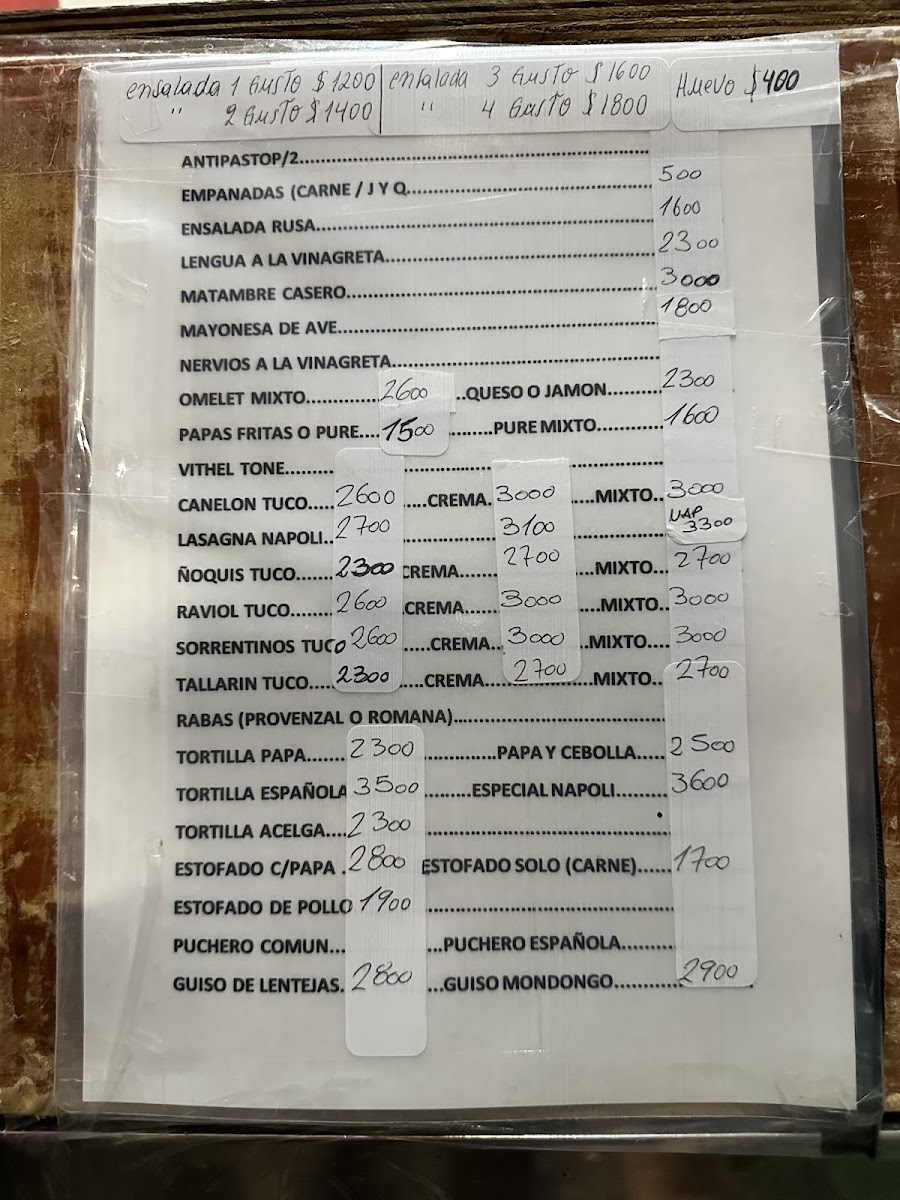 ensalada 1 Gusto $1200 ensalada 3 Gusto $1600 Huevo $400
" 2 Gusto $1400 " 4 Gusto $1800
ANTIPASTOP/2
EMPANADAS (CARNE / J Y Q 500
ENSALADA RUSA 1600
LENGUA A LA VINAGRETA 2300
MATAMBRE CASERO 3000
MAYONESA DE AVE 1800
NERVIOS A LA VINAGRETA
OMELET MIXTO 2600 QUESO O JAMON 2300
PAPAS FRITAS O PURE 1500 PURE MIXTO 1600
VITHEL TONE
CANELON TUCO 2600 CREMA 3000 MIXTO 3000
LASAGNA NAPOLI 2700 3100 UAP 3300
ÑOQUIS TUCO 2300 CREMA 2700 MIXTO 2700
RAVIOL TUCO 2600 CREMA 3000 MIXTO 3000
SORRENTINOS TUCO 2600 CREMA 3000 MIXTO 3000
TALLARIN TUCO 2300 CREMA 2700 MIXTO 2700
RABAS (PROVENZAL O ROMANA)
TORTILLA PAPA 2300 PAPA Y CEBOLLA 2500
TORTILLA ESPAÑOLA 3500 ESPECIAL NAPOLI 3600
TORTILLA ACELGA 2300
ESTOFADO C/PAPA 2800 ESTOFADO SOLO (CARNE) 1700
ESTOFADO DE POLLO 1900
PUCHERO COMUN PUCHERO ESPAÑOLA
GUISO DE LENTEJAS 2800 GUISO MONDONGO 2900